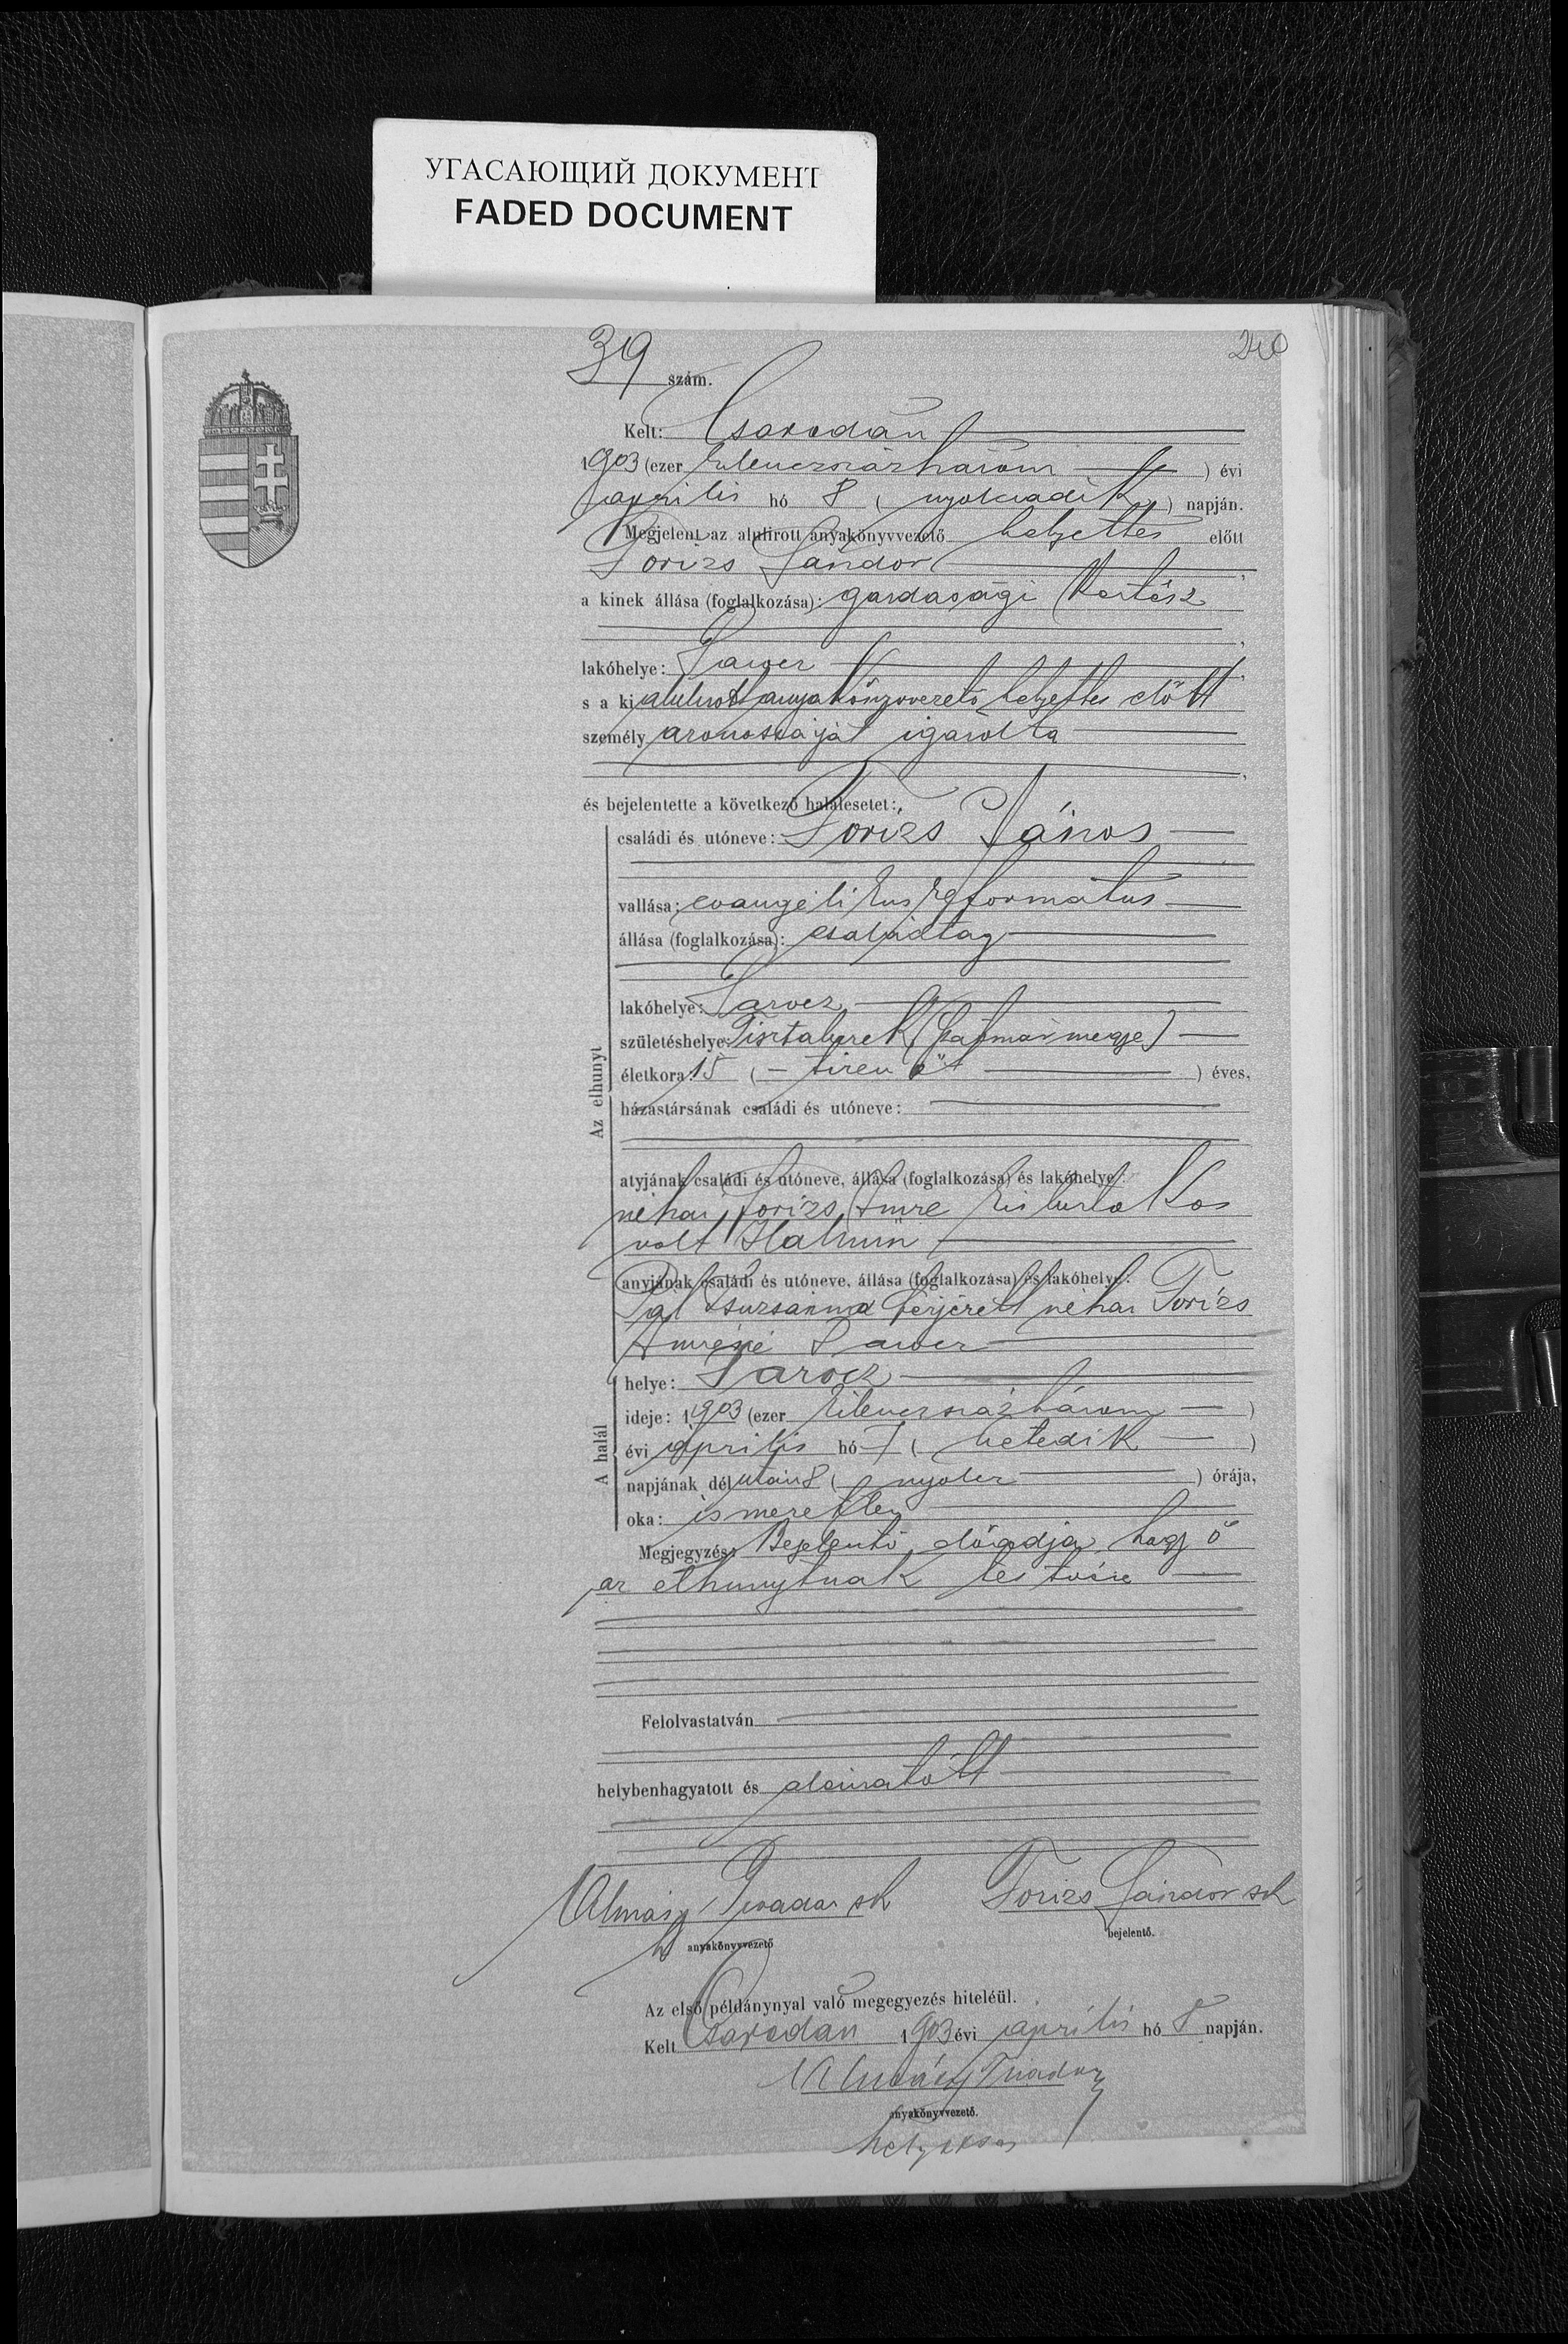 УГАСАЮЩИЙ ДОКУМЕНТ
FADED DOCUMENT
39 szám.
240
Kelt: Csarodán
1903 (ezer kilenczszázhárom) évi
április hó 8 (nyolczadik) napján.
Megjelent az alulirott anyakönyvvezető helyettes előtt
Torizs Sándor
a kinek állása (foglalkozása): gazdasági kertész
lakóhelye:
s a ki alulirott anyakönyvvezető helyettes előtt
személy azonosságát igazolta
és bejelentette a következő halálesetet:
családi és utóneve: Torizs János
vallása: evangélikus református
állása (foglalkozása): családtag
lakóhelye:
születéshelye: Tisztaberek (Szatmármegye)
életkora: 15 (– tizenöt) éves,
házastársának családi és utóneve:
atyjának családi és utóneve, állása (foglalkozása) és lakóhelye:
néhai Torizs Imre kisbirtokos
volt
anyjának családi és utóneve, állása (foglalkozása) és lakóhelye:
Pál Zsuzsánna férjezett néhai Torizs
Imréné
Az elhunyt
helye:
ideje: 1903 (ezer kilenczszázhárom)
évi április hó 7 (hetedik)
napjának délután 8 (nyolcz) órája,
oka: ismeretlen
A halál
Megjegyzés: Bejelentő előadja hogy ő
az elhunytnak testvére
Felolvastatván
helybenhagyatott és aláiratott
Almásy Tivadar sk
h anyakönyvvezető
Torizs Sándor sk
bejelentő.
Az első példánynyal való megegyezés hiteléül.
Kelt Csarodán 1903 évi április hó 8 napján.
Almásy Tivadar
anyakönyvvezető.
helyettes